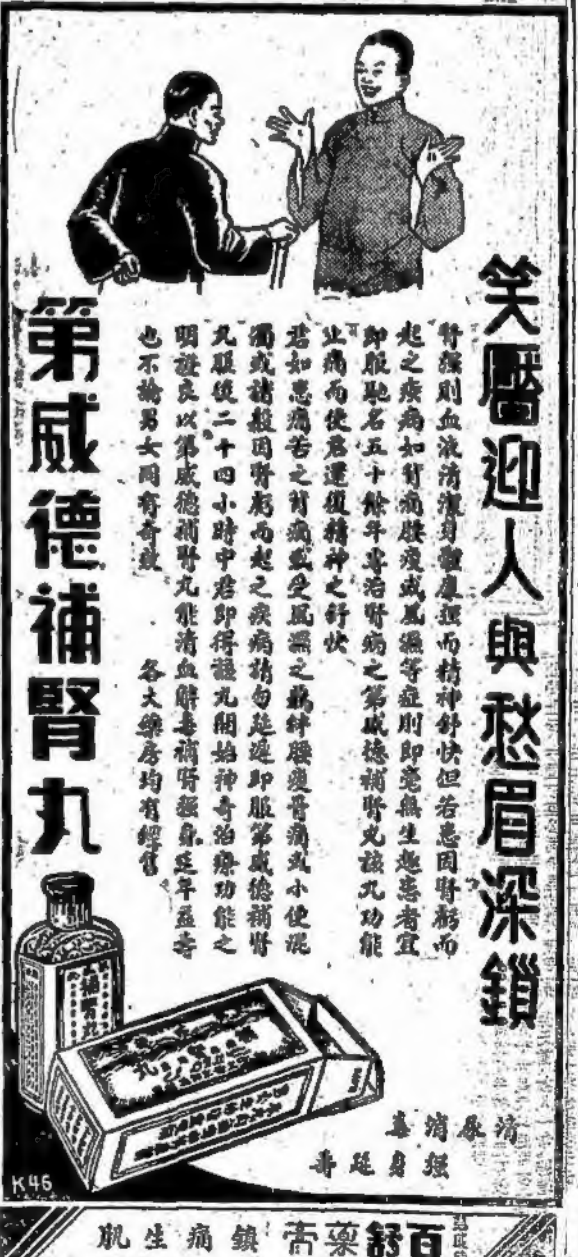 笑靨迎人與愁眉深鎖
腎強則血液清潔身體康狀而精神舒快但若患因腎虧而
起之疾病如背痛腰痠或風濕等症則即毫無生趣患者宜
即服馳名五十餘年專治腎病之第威德補腎丸該丸功能
止痛而使君還復精神之舒快
君如患痛苦之背痛或受風濕之羈絆腰痠骨痛或小便混
濁或諸般因腎虧而起之疾病請勿延遲即服第威德補腎
丸服後二十四小時中君即得該丸開始神奇治療功能之
明證良以第威德補腎丸能清血解毒補腎強身延年益壽
也不論男女同有奇效
各大藥房均有經售
第威德補腎丸
補腎丸
清尿消毒
強身延壽
K46
百舒藥膏鎮痛生肌